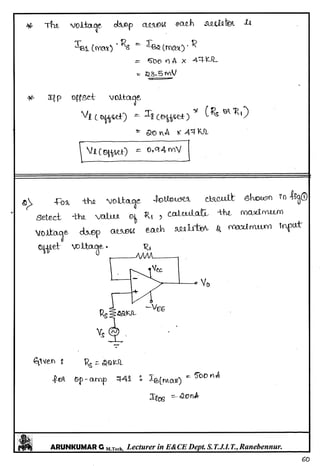 * The voltage drop across each resistor is
I_B1 (max) · R_S = I_B2 (max) · R
= 500 nA × 47KΩ
= 23.5 mV
* I/p offset voltage
V_i (offset) = I_i (offset) × (R_S or R_1)
= 20 nA × 47 KΩ
V_i (offset) = 0.94 mV
2) For the voltage follower circuit shown in fig①
select the value of R_1, calculate the maximum
voltage drop across each resistor & maximum input
offset voltage.
R_1
V_CC
V_0
-V_EE
R_S 22KΩ
V_S
Given : R_S = 22KΩ
for op-amp 741 : I_B(max) = 500 nA
I_ios = 20nA
ARUNKUMAR G M.Tech, Lecturer in E&CE Dept. S.T.J.I.T., Ranebennur.
60